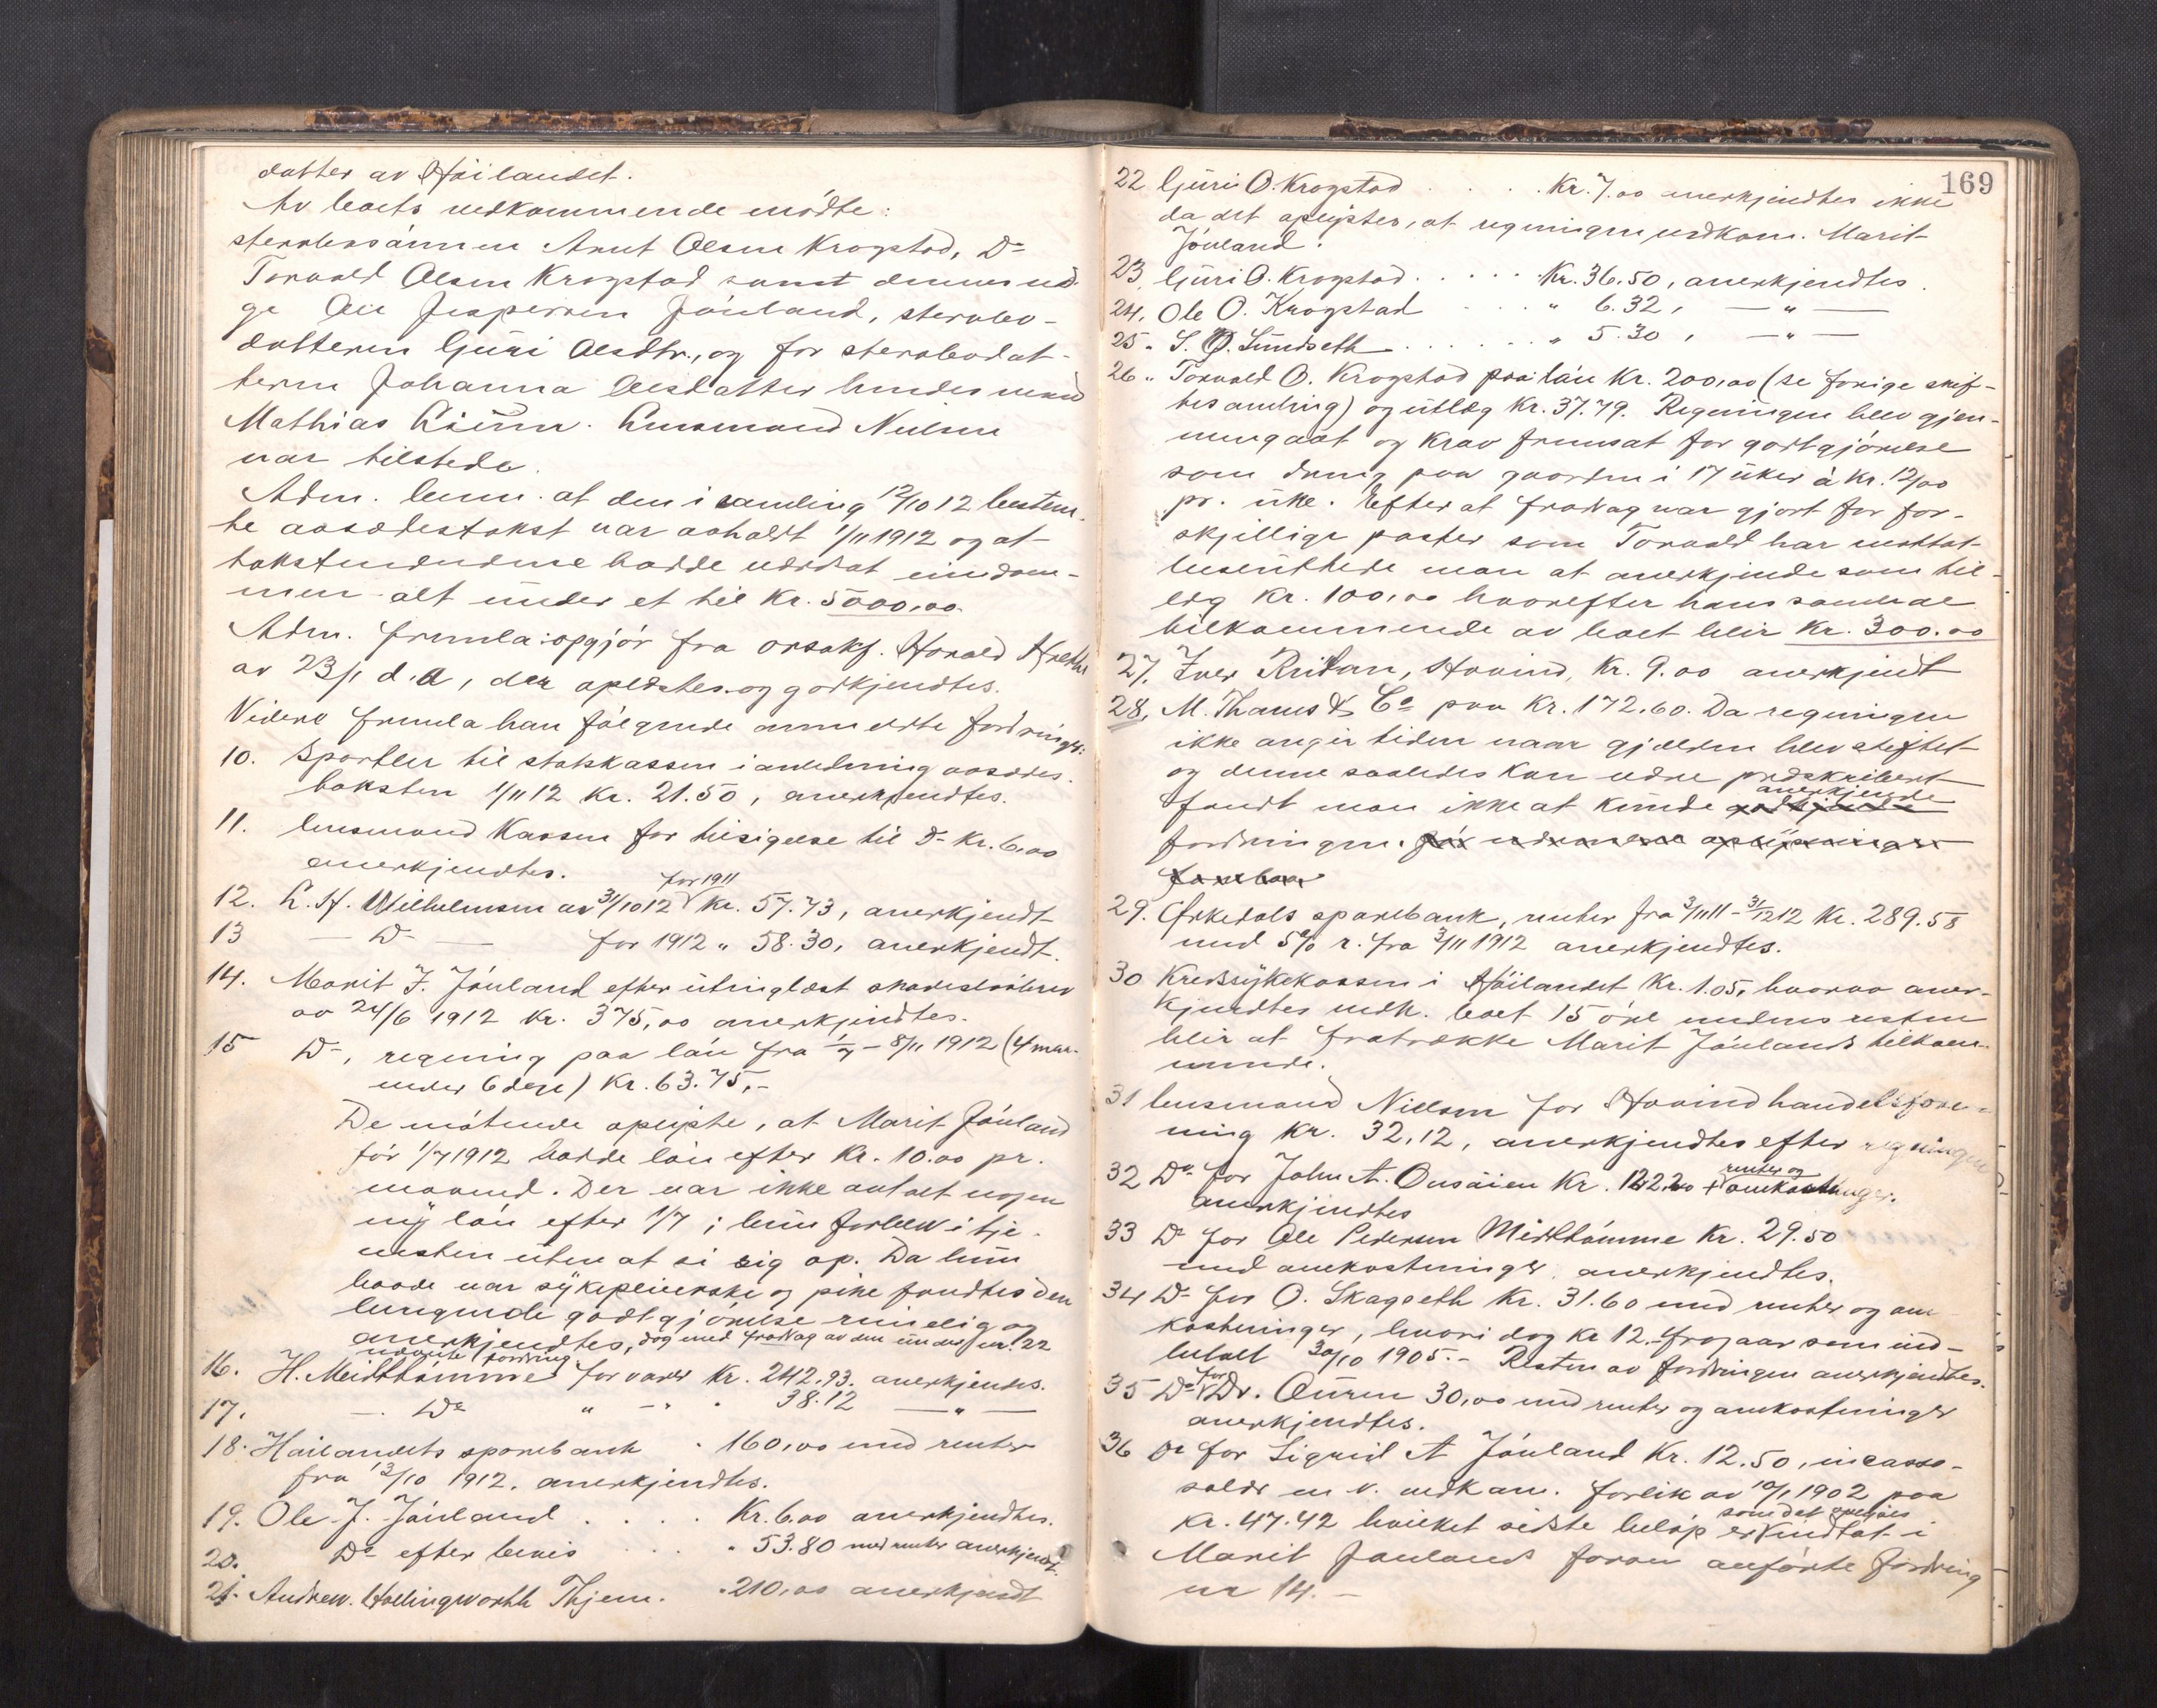 datter av Høilandet.
Av boets vedkommende mødte:
stervbosønnen Arnt Olsen Krogstad, Do
Torvald Olsen Krogstad samt dennes ver-
ge Ole Jespersen Jøuland, stervbo-
datteren Guri Olsdtr., og for stervbodat-
teren Johanna Olsdatter hendes mand
Mathias. Lensmand Nielsen
var tilstede.
Adm. bem. at den i samling 12/10 12 bestem-
te aasædestakst var avholdt 1/11 1912 og at
takstmændene hadde værdsat eiendom-
men alt under et til Kr. 5000,00
Adm. fremla: opgjør fra orsakf. Harald
av 23/1 d.a, der oplæstes og godkjendtes.
Videre fremla han følgende anmeldte fordringer:
10. Sportler til statskassen i anledning aasædes-
taksten 1/11 12 Kr. 21.50, anerkjendtes.
11. lensmand Kassen for tilsigelse til Do Kr. 6,00
anerkjendtes.
12. L. H. Wilhelmsen av 31/10 12 for 1911 Kr. 57.73, anerkjendt
13 — Do — for 1912 " 58.30, anerkjendt.
14. Marit J. Jøuland efter utinglæst skadesløsbrev
av 24/6 1912 Kr. 375,00 anerkjendtes.
15 Do, regning paa løn fra 1/7 – 8/11 1912 (4 maa-
neder 6 dage) Kr. 63.75,-
De møtende oplyste, at Marit Jøuland
før 1/7 1912 hadde løn efter Kr. 10.00 pr.
maaned. Der var ikke avtalt nogen
ny løn efter 1/7; hun forblev i tje-
nesten uten at si sig op. Da hun
baade var sykepleierske og pike fandtes den
betingende godtgjørelse rimelig og
anerkjendtes, dog med fradrag av den under nr. 22
nævnte fordring.
16. H. Meidthømme for varer Kr. 242.93. anerkjendes.
17. — Do " — " 38.12 — " —
18. Høilandets sparebank " 160,00 med renter
fra 12/10 1912. anerkjendtes.
19. Ole J. Jøuland . . . . Kr. 6.00 anerkjendtes.
20. Do efter bevis . . . " 53.80 med renter anerkjendt.
21. Andrew. Hollingworth Thjem. " 210,00 anerkjendt
169
22 Guri O. Krogstad . . . . Kr. 7.00 anerkjendtes ikke
da det oplystes, at regningen vedkom. Marit
Jøuland.
23. Guri O. Krogstad . . . . . Kr. 36.50, anerkjendtes.
24. Ole O. Krogstad . . . " 6.32, — " —
25. S. O. Lundseth . . . . . . " 5.30, — " —
26. Torvald O. Krogstad paa: løn Kr. 200,00 (se forrige skif-
tesamling) og utlæg Kr. 37.79. Regningen blev gjen-
nemgaat og krav fremsat for godtgjørelse
som dreng paa gaarden i 17 uker à Kr. 12,00
pr. uke. Efter at fradrag var gjort for for-
skjellige poster som Torvald har mottat
besluttede man at anerkjende som til-
læg Kr. 100,00 hvorefter hans samlede
tilkommende av boet blir Kr. 300.00
27. Iver Ristan, Hovind, Kr. 9.00 anerkjendt
28. M. Thams & Co paa Kr. 172.60. Da regningen
ikke angir tiden naar gjælden blev stiftet
og denne saaledes kan være præskribert
fandt man ikke at kunde godkjende anerkjende
fordringen. før nærmere oplysninger
forela
29. Orkedals sparebank, renter fra 3/11 11 – 31/12 12 Kr. 289.58
med 5% r. fra 3/11 1912 anerkjendtes.
30 Kredssykekassen i Høilandet Kr. 1.05, hvorav aner-
kjendtes vedk. boet 15 øre medens resten
blir at fratrække Marit Jøulands tilkom-
mende.
31 lensmand Nielsen for Hovind handelsfore-
ning Kr. 32,12, anerkjendtes efter regningen
32 Do for John A. Onsøien Kr. 122.20 + renter og omkostninger.
anerkjendtes
33 Do for Ole Pedersen Midtthømme Kr. 29.50
med omkostninger anerkjendtes.
34 Do for O. Skagseth Kr. 31.60 med renter og om-
kostninger, hvori dog Kr 12.- fragaar som ind-
betalt 30/10 1905.- Resten av fordringen anerkjendtes.
35 Do for Dr. Auren 30,00 med renter og omkostninger
anerkjendtes.
36 Do for Sigrid A Jøuland Kr. 12.50, incasso-
salær m. v. vedkom. forlik av 10/1 1902 paa
Kr. 47.42 hvilket sidste beløp som det er indtat i
Marit Jøulands foran anførte fordring
nr 14.–